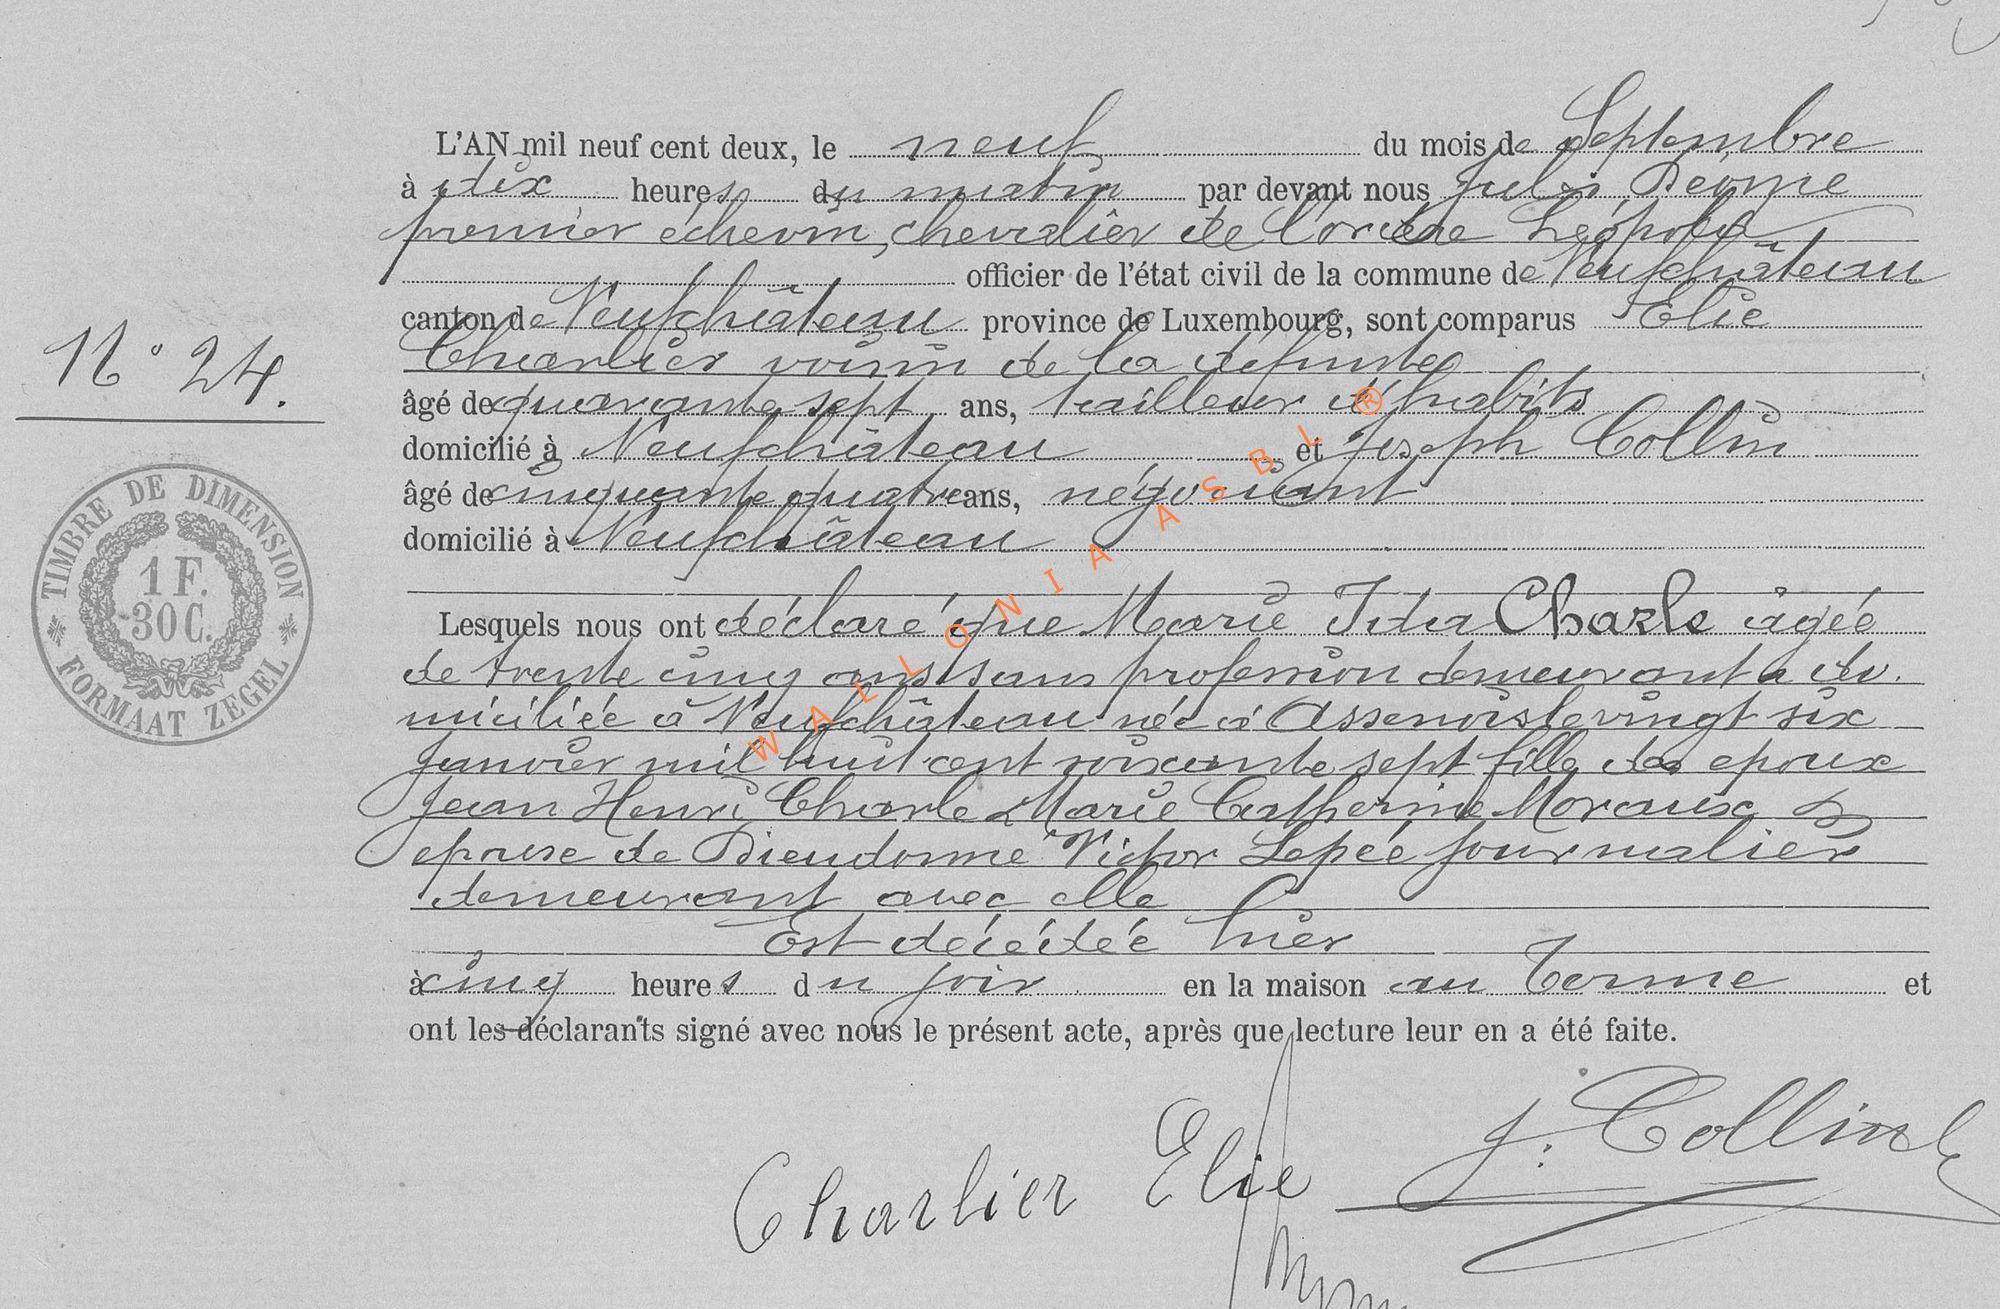 L'AN mil neuf cent deux, le neuf du mois de Septembre
à dix heures du matin par devant nous Jules
premier échevin, chevalier de l'ordre Léopold
officier de l'état civil de la commune de Neufchâteau
canton de Neufchâteau province de Luxembourg, sont comparus Elie
Charlier voisin de la défunte
N° 24.
âgé de quarante sept ans, tailleur d'habits
domicilié à Neufchâteau et Joseph Collin
âgé de cinquante quatre ans, négociant
domicilié à Neufchâteau
TIMBRE DE DIMENSION
1 F.
30 C.
FORMAAT ZEGEL
Lesquels nous ont déclaré que Marie Ida Charle âgée
de trente cinq ans sans profession demeurant & do.
miciliée à Neufchâteau née à Assenois le vingt six
Janvier mil huit cent soixante sept fille des epoux
Jean Henri Charle & Marie Catherine Moraux &
epouse de Dieudonné Victor Lepée journalier
demeurant avec elle
Est décédée hier
à cinq heures du soir en la maison au Terme et
ont les déclarants signé avec nous le présent acte, après que lecture leur en a été faite.
J. Collin
Charlier Elie
WALLONIA ASBL ®